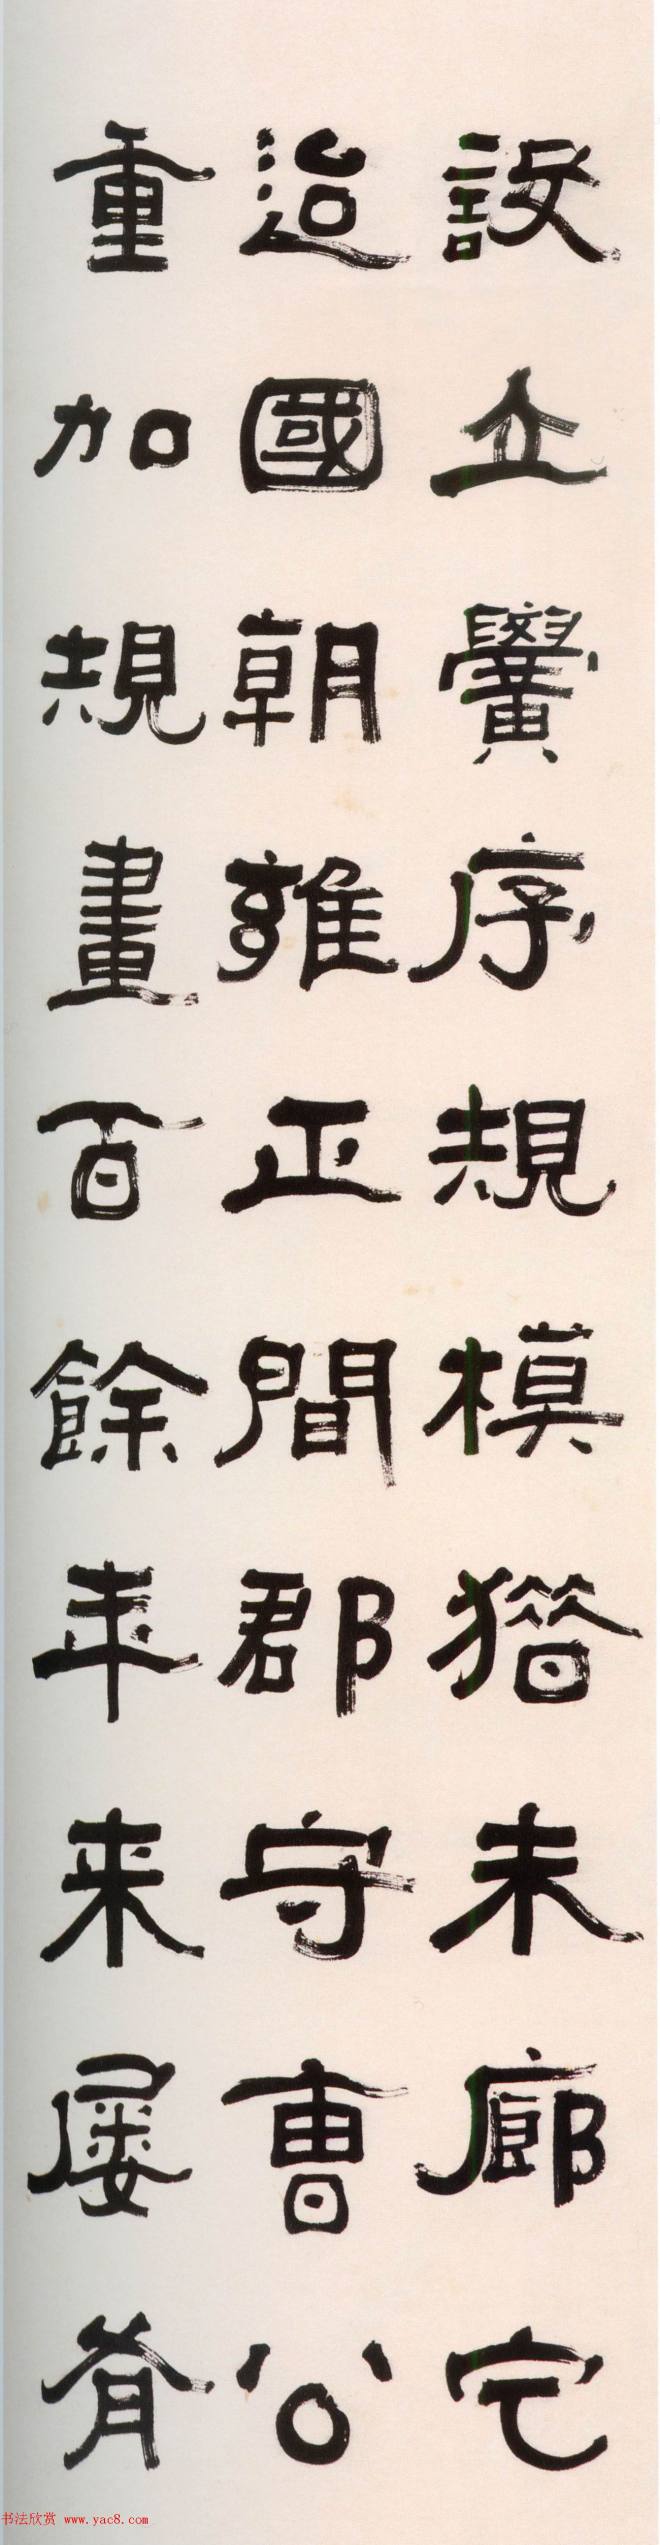 設立黌序規模猶未廓它
迨國朝雍正間郡守曹公
重加規畫百餘年来屡有
书法欣赏 www.yac8.com